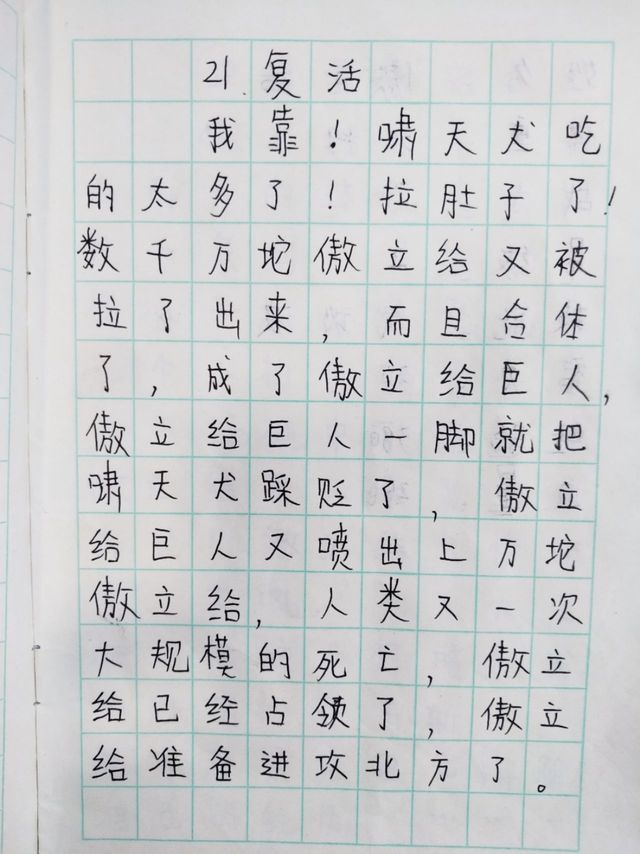 21.复活
我靠！啸天犬吃
的太多了！拉肚子了！
数千万坨傲立给又被
拉了出来，而且合体
了，成了傲立给巨人，
傲立给巨人一脚就把
啸天犬踩贬了，傲立
给巨人又喷出上万坨
傲立给，人类又一次
大规模的死亡，傲立
给已经占领了，傲立
给准备进攻北方了。